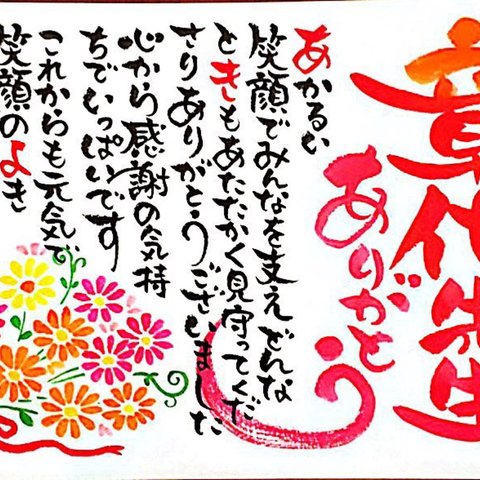 章代先生
ありがとう
あかるい
笑顔でみんなを支えどんな
ときもあたたかく見守ってくだ
さりありがとうございました
心から感謝の気持
ちでいっぱいです
これからも元気で
笑顔のよき